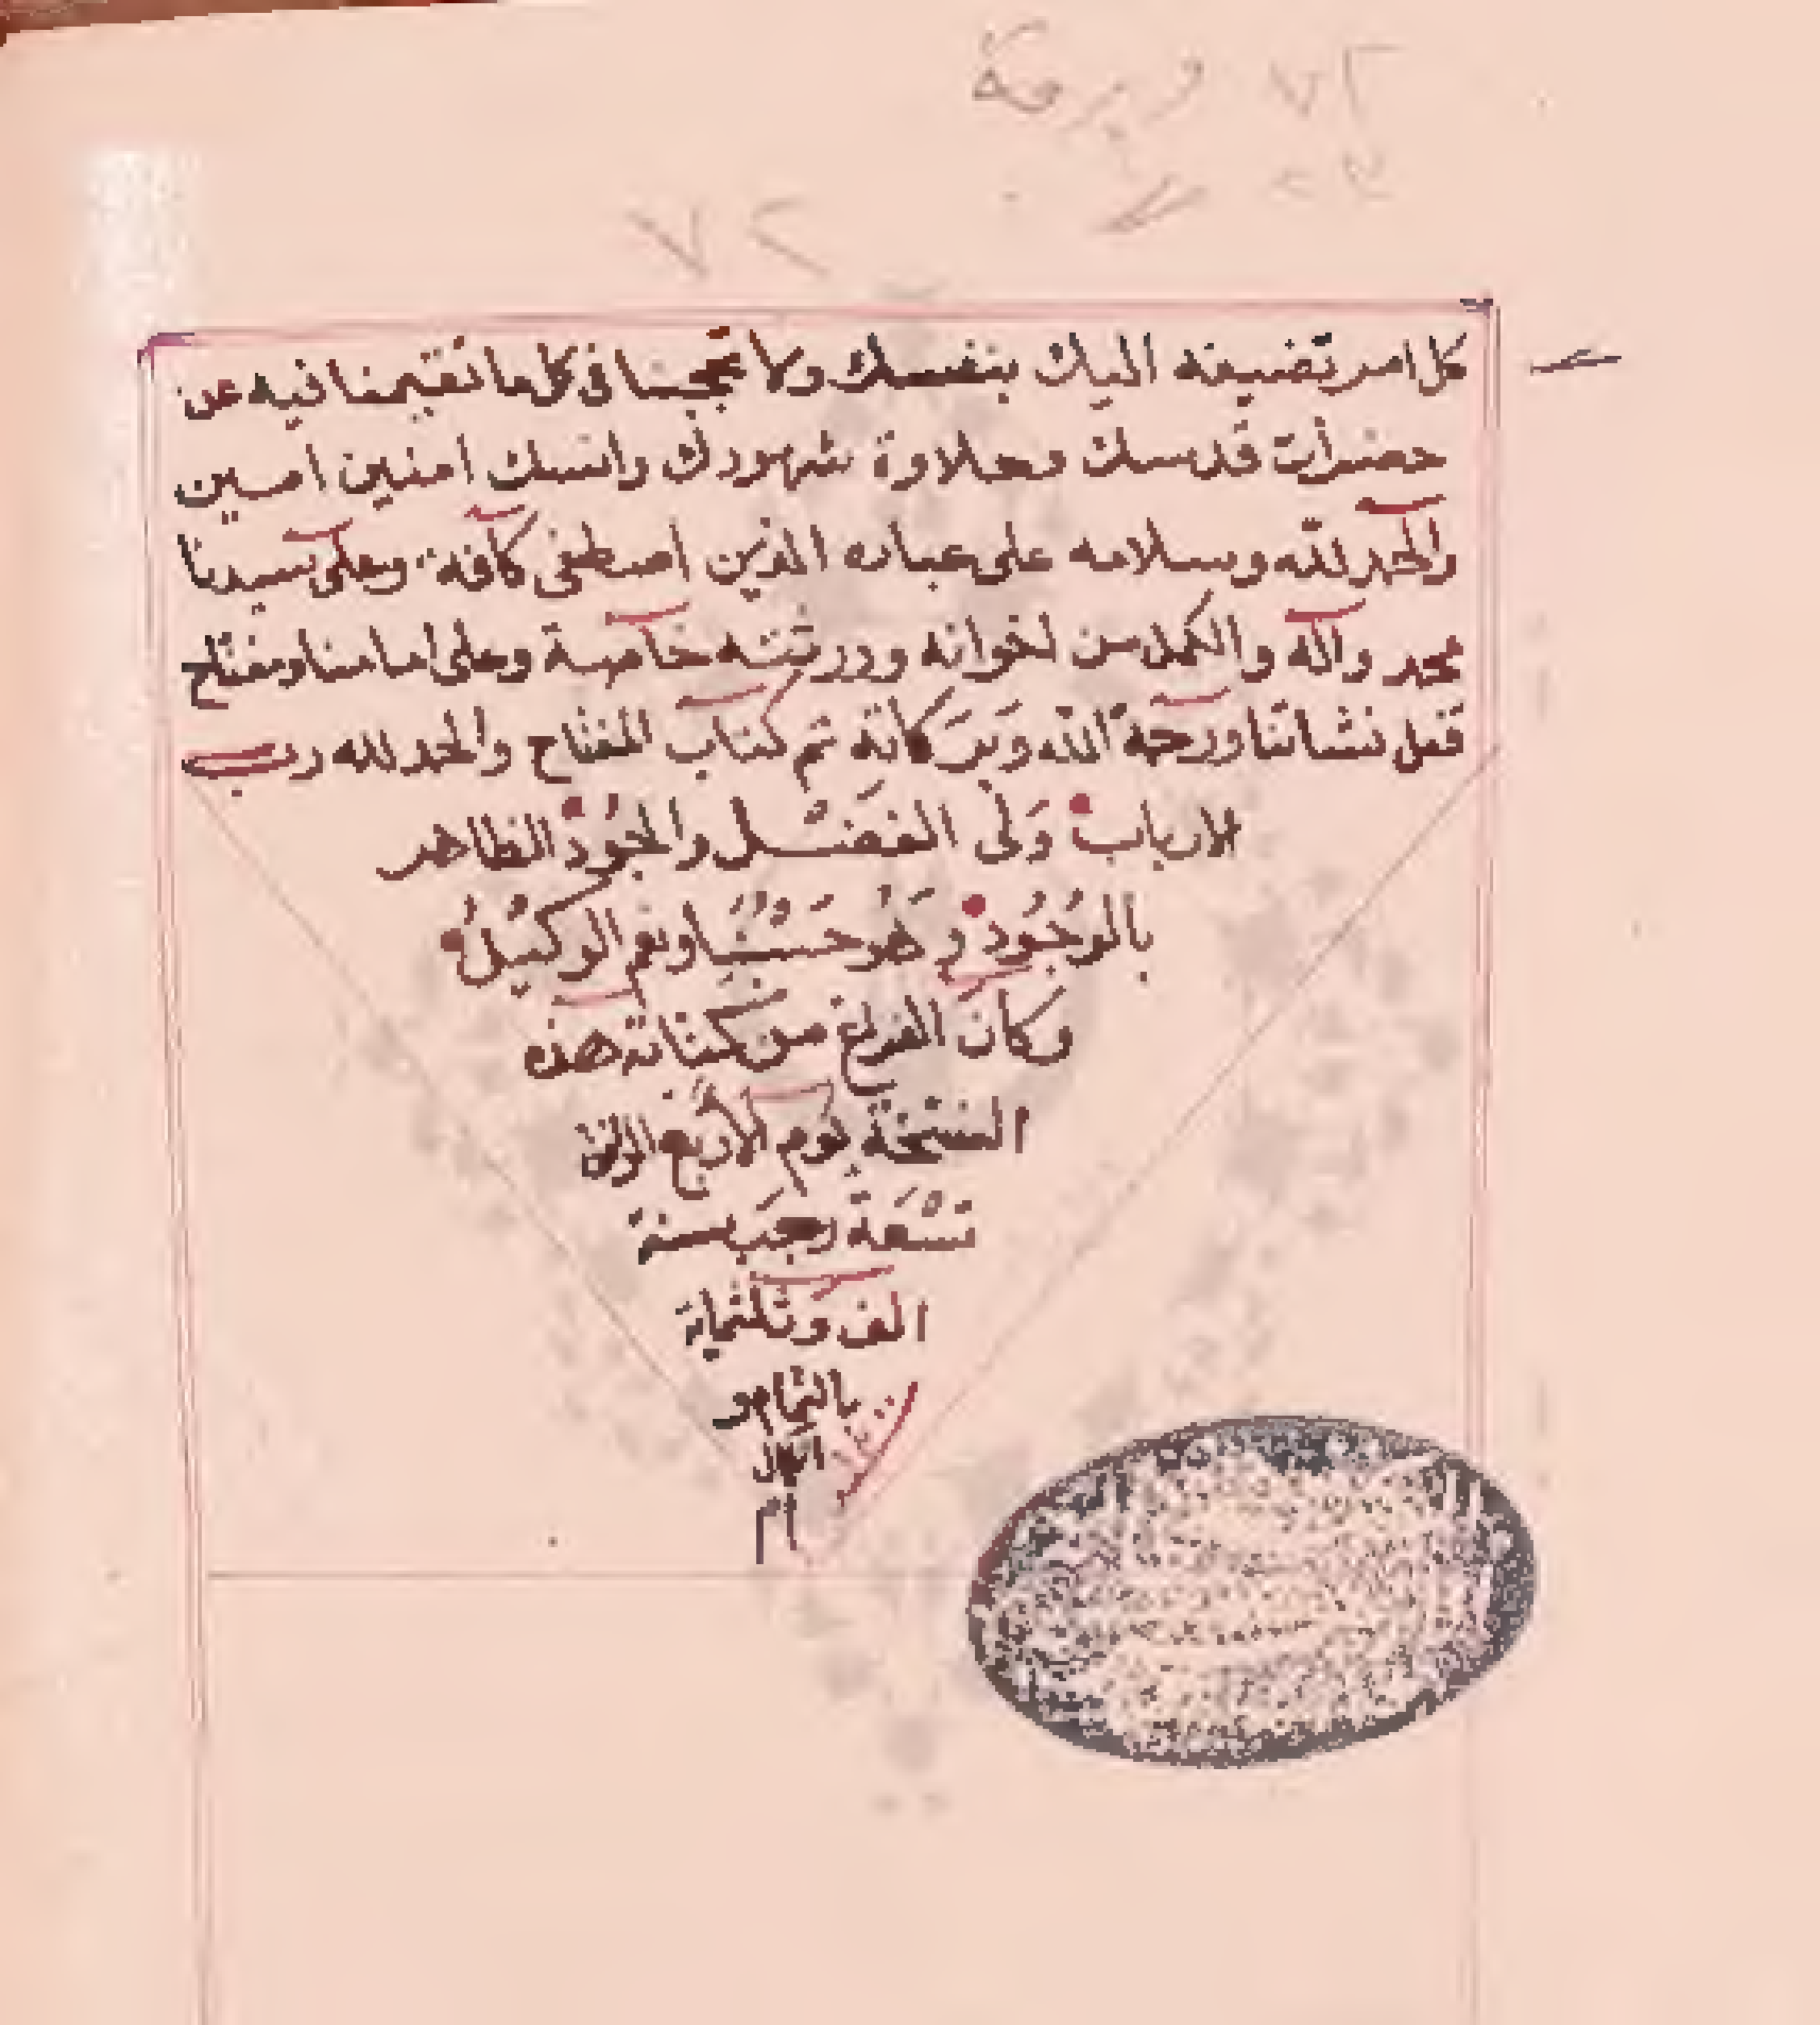 ٧٢ ورقة
٧٢
كل امر تضيفه اليك بنفسك ولا تحجبنا في كل ما تقيمنا فيه عن
حضرات قدسك وحلاوة شهودك وانسك امنين امين
والحمد لله وسلامه على عباده الذين اصطفى كافة وعلى سيدنا
محمد واله والكمل من اخوانه وورثته خاصة وعلى امامنا ومفتاح
قفل نشاتنا ورحمة الله وبركاته تم كتاب المفتاح والحمد لله رب
الارباب وَلي الفَضْل والجُود الظاهر
بالوُجُود وَهُو حَسْبُنَا ونعم الوكيلُ
وكان الفراغ من كتابة هذه
النسخة يوم الاربع
تسْعَة رجَب سنة
الف وثلثماية
بالتمام و